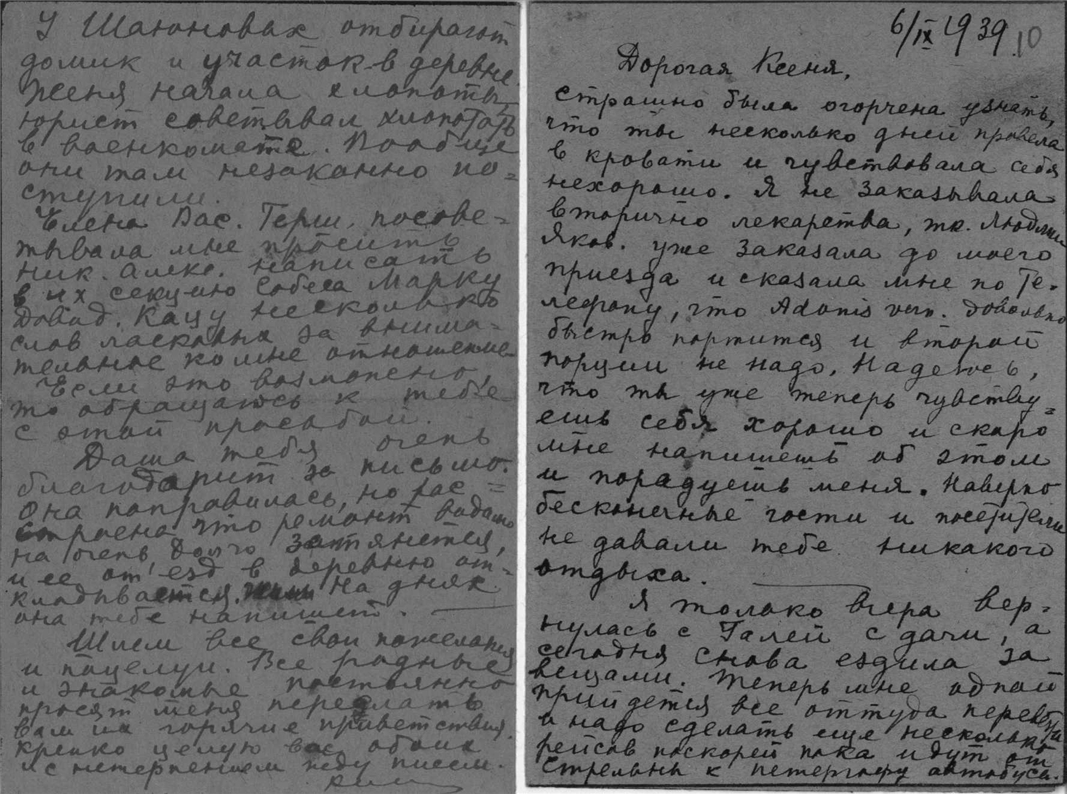 6/IX 1939
10
Дорогая Ксеня,
страшно была огорчена узнать,
что ты несколько дней провела
в кровати и чувствовала себя
нехорошо. Я не заказывала
вторично лекарства, тк. Людмил
Яков. уже заказала до моего
приезда и сказала мне по Те-
лефону, что Adonis vern. довольно
быстро портится и второй
порции не надо. Надеюсь,
что ты уже теперь чувству=
ешь себя хорошо и скоро
мне напишешь об этом
и порадуешь меня. Наверно
бесконечные гости и посетители
не давали тебе никакого
отдыха.
Я только вчера вер=
нулась с Галей с дачи, а
сегодня снова ездила за
вещами. Теперь мне одной
прийдется все оттуда перевозить
и надо сделать еще несколько
рейсов поскорей пока идут от
Стрельны к петергофу автобусы.
У Шаюновах отбирают
домик и участок в деревне
Женя начала хлопоты,
юрист советывал хлопотать
в военкомате. Вообще
они там незаконно по=
ступили.
Елена Вас. Герш. посове=
тывала мне просить
Ник. Алекс. написать
в их секцию Собеса Марку
Давид. Кацу несколько
слов ласковых за внима-
тельное ко мне отношение
Если это возможно,
то обращаюсь к тебе
с этой просьбой.
Даша тебя очень
благодарит за письмо.
Она поправилась, но рас=
строена что ремонт
на очень долго затянется,
и ее от'езд в деревню от-
кладывается. На днях
она тебе напишет.
Шлем все свои пожелания
и поцелуи. Все родные
и знакомые постоянно
просят меня передать
вам их горячие приветствия.
Крепко целую вас обоих
и с нетерпением жду писем.